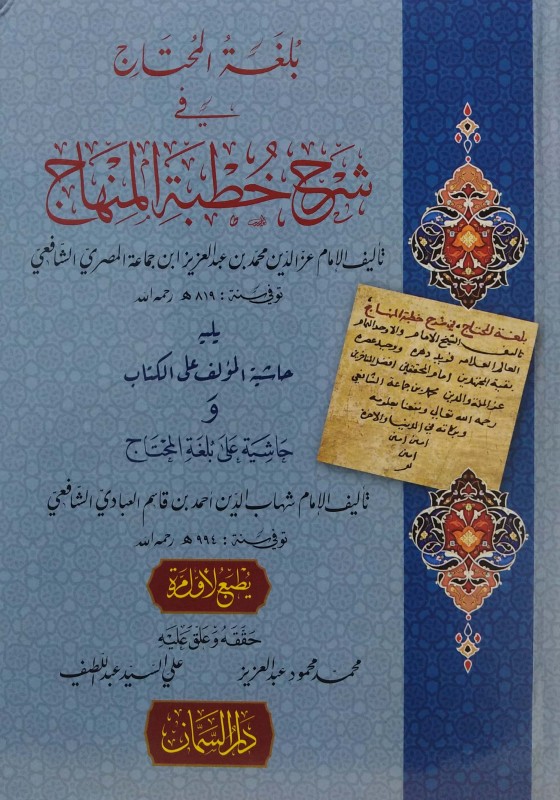 بُلغَةُ المُحتَاجِ
في
شَرْحِ خُطْبَةِ المِنْهَاجِ
تأليف الإمام عز الدين محمد بن عبد العزيز ابن جماعة المصري الشافعي
توفي سنة : ٨١٩ هـ رحمه الله
يليه
حاشية المؤلف على الكتاب
و
حَاشِيَة عَلى بُلغَةِ المُحْتَاج
تأليف الإمام شهاب الدين أحمد بن قاسم العبادي الشافعي
توفي سنة : ٩٩٤ هـ رحمه الله
يُطبَعُ لأوَّلِ مَرة
حَقّقَهُ وَعَلّقَ عَلَيْهِ
محمد محمود عبد العزيز
علي السيد عبد اللطيف
دَارُ السَّمَّان
بلغة المحتاج في شرح خطبة المنهاج
تاليف الشيخ الامام والاوحد الهمام
العالم العلامة فريد دهره ووحيد عصره
بقية المجتهدين امام المحققين افضل المتاخرين
عز الملة والدين محمد بن جماعة الشافعي
رحمه الله تعالى ونفعنا بعلومه
وبركاته في الدنيا والاخرة
امين امين
امين